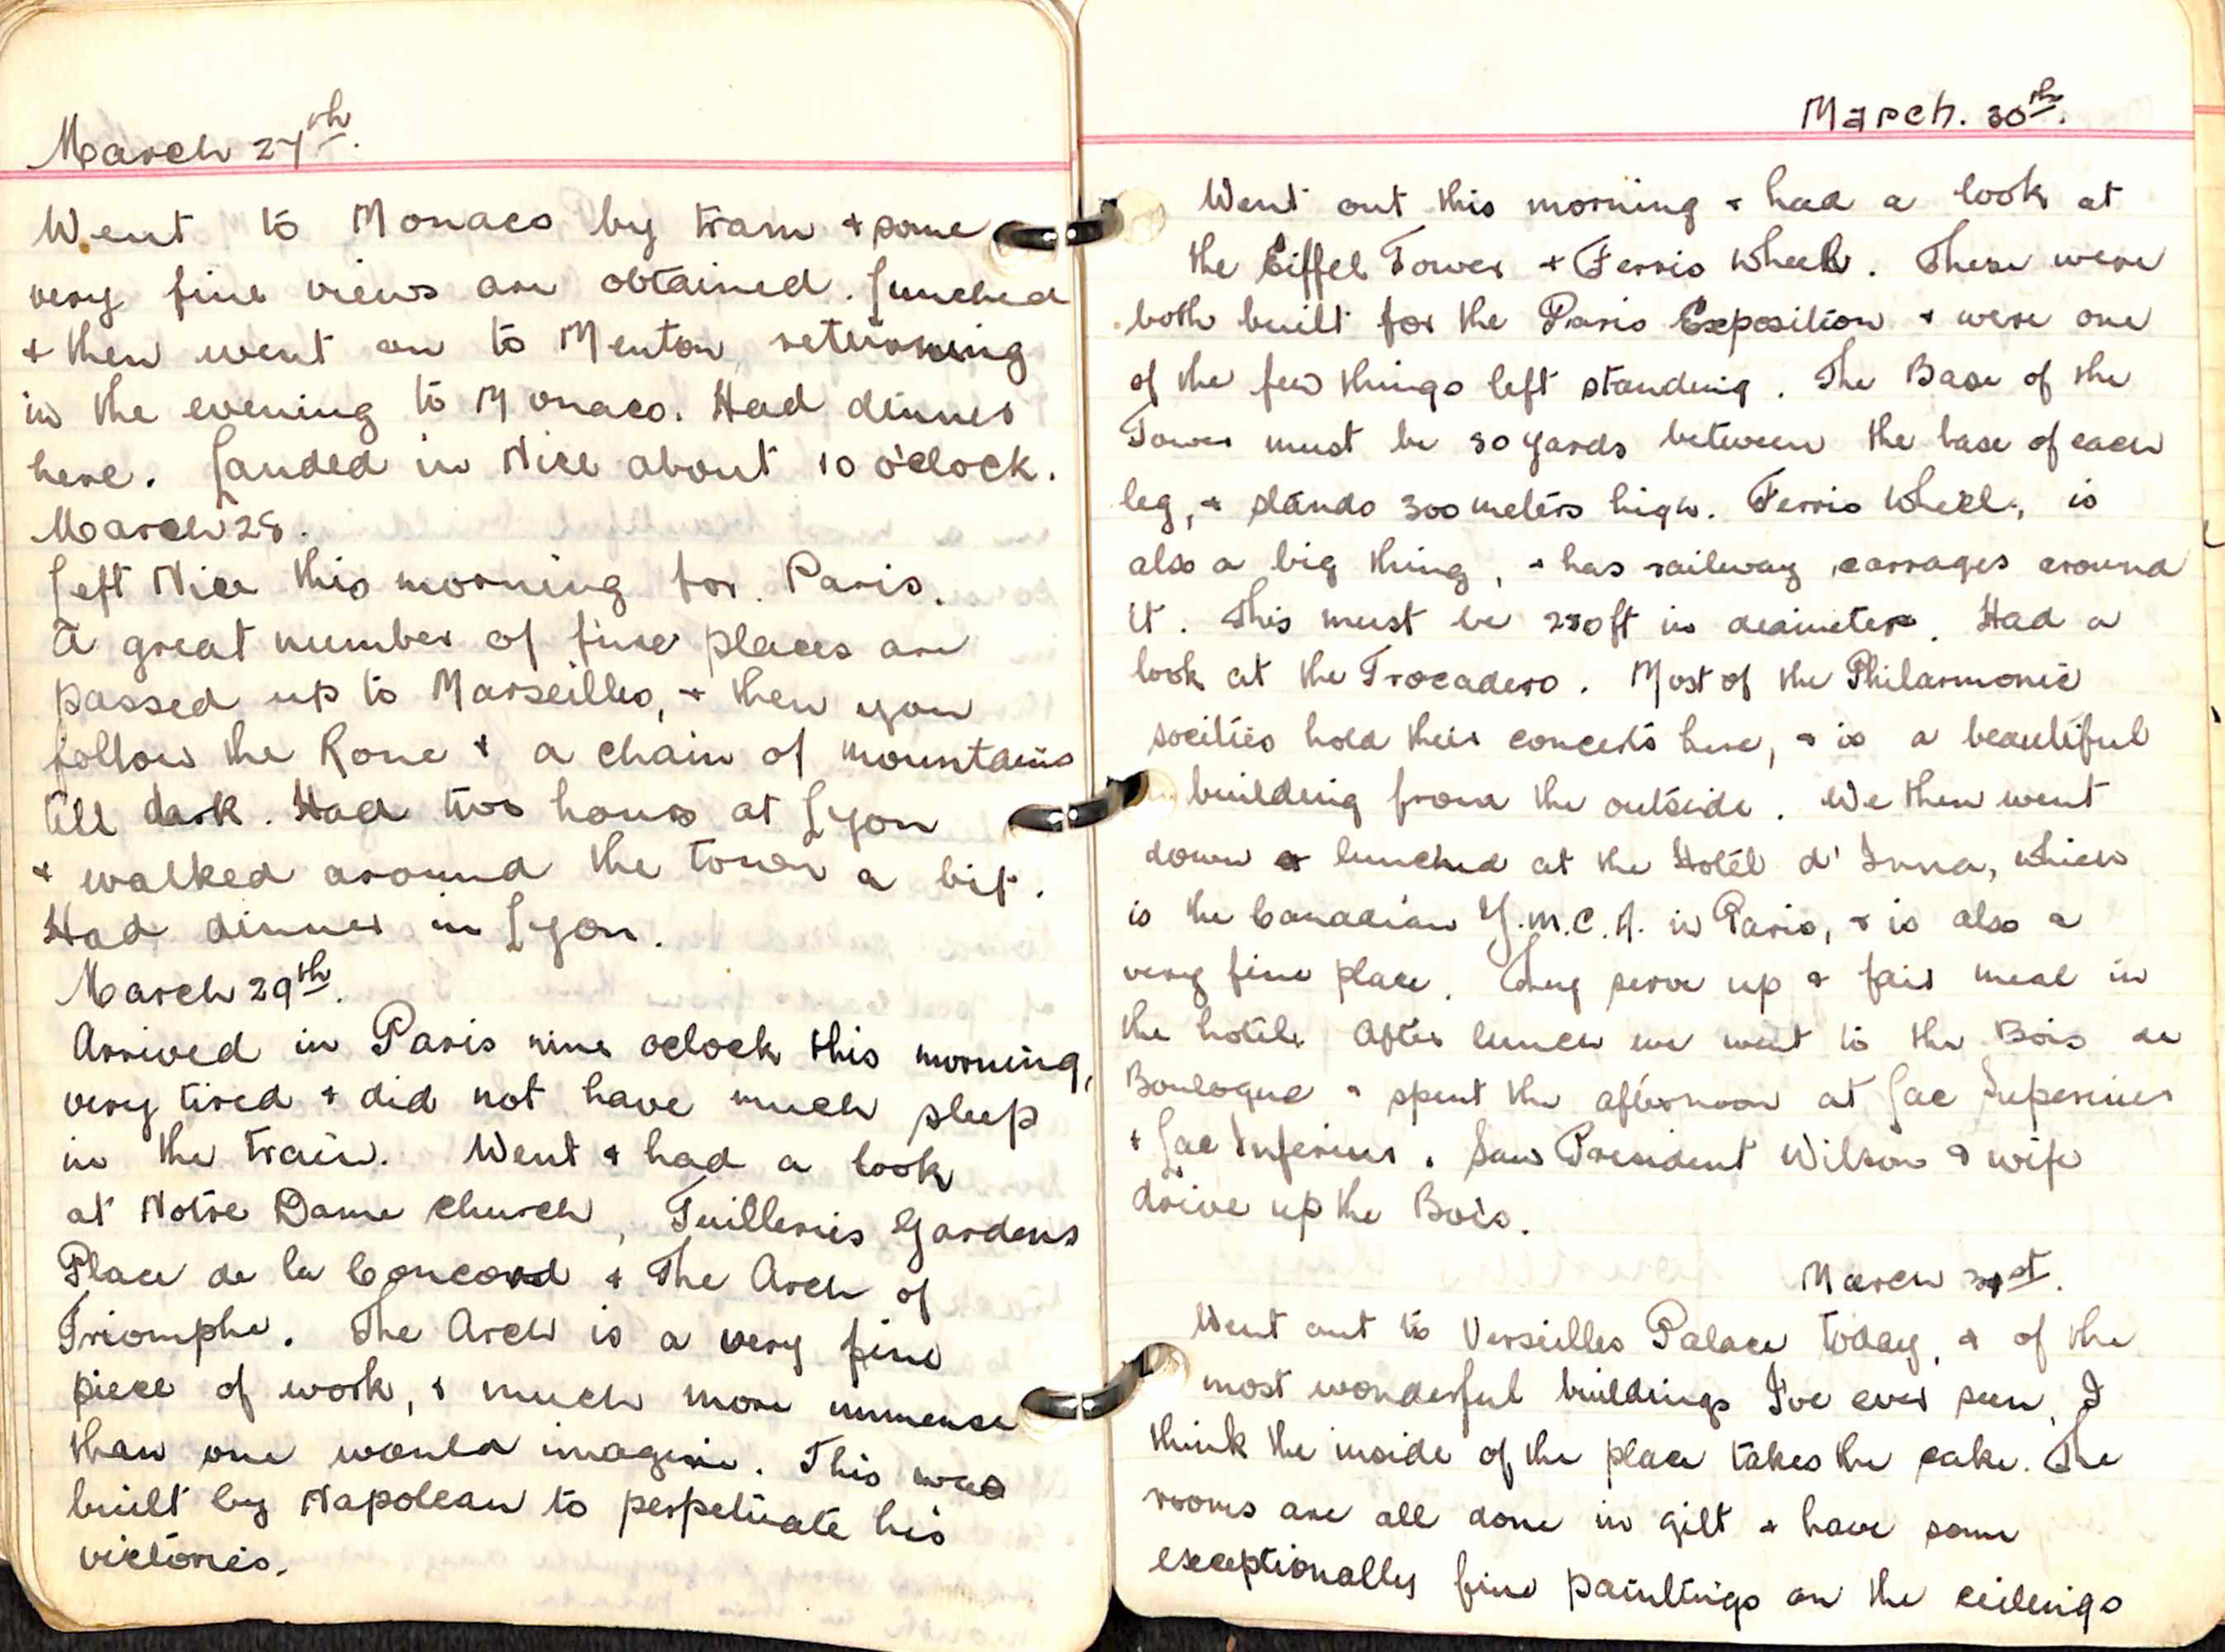 March 27th.
Went to Monaco by tram + some
very fine views are obtained. Lunched
+ then went on to Menton returning
in the evening to Monaco. Had dinner
here. Landed in Nice about 10 o'clock.
March 28.
Left Nice this morning for Paris.
A great number of fine places are
passed up to Marseilles, + then you
follow the Rone + a chain of mountains
till dark. Had two hours at Lyon
+ walked around the town a bit.
Had dinner in Lyon.
March 29th.
Arrived in Paris nine oclock this morning,
very tired + did not have much sleep
in the train. Went + had a look
at Notre Dame church, Tuilleries Gardens
Place de la Concord + The Arch of
Triomphe. The Arch is a very fine
piece of work, + much more immense
than one would imagine. This was
built by Napolean to perpetuate his
victories.
March. 30th.
Went out this morning + had a look at
the Eiffel Tower + Ferris Wheel. These were
both built for the Paris Exposition + were one
of the few things left standing. The Base of the
Tower must be 50 yards between the base of each
leg, + stands 300 meters high. Ferris Wheel, is
also a big thing, + has railway carrages around
it. This must be 250 ft in deameter. Had a
look at the Trocadero. Most of the Philarmonic
socities hold their concerts here, + is a beautiful
building from the outside. We then went
down + lunched at the Hotel d' Iena, which
is the Canadian Y.M.C.A. in Paris, + is also a
very fine place. They serve up a fair meal in
the hotel. After lunch we went to the Bois de
Boulogne + spent the afternoon at Lac Superieur
+ Lac Inferieur. Saw President Wilson + wife
drive up the Bois.
March 31st.
Went out to Verseilles Palace today, + of the
most wonderful buildings I've ever seen, I
think the inside of the place takes the cake. The
rooms are all done in gilt + have some
exceptionally fine paintings on the ceilings